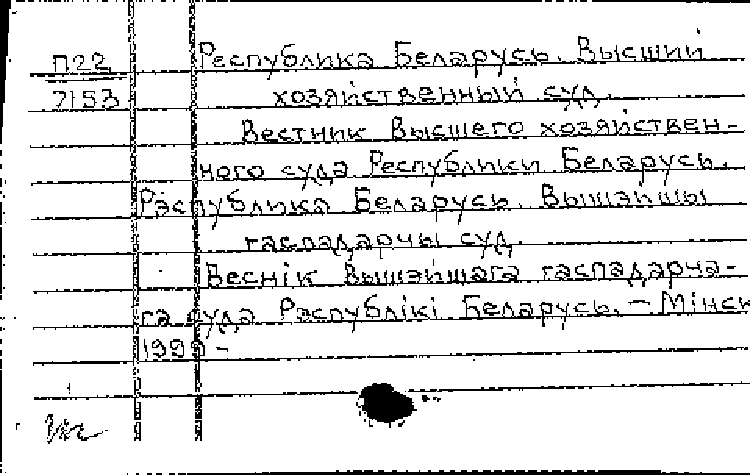 П22 Республика Беларусь. Высший
7153 хозяйственный суд.
Вестник Высшего хозяйствен-
ного суда Республики Беларусь.
Рэспубліка Беларусь. Вышэйшы
гаспадарчы суд.
Веснік Вышэйшага гаспадарча-
га суда Рэспублікі Беларусь. – Мінск